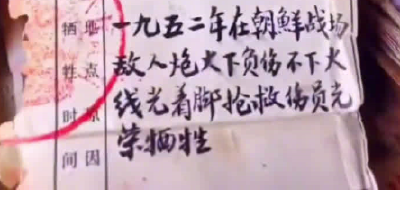 牺牲时间
地点原因
一九五二年在朝鲜战场
敌人炮火下负伤不下火
线光着脚抢救伤员光
荣牺牲